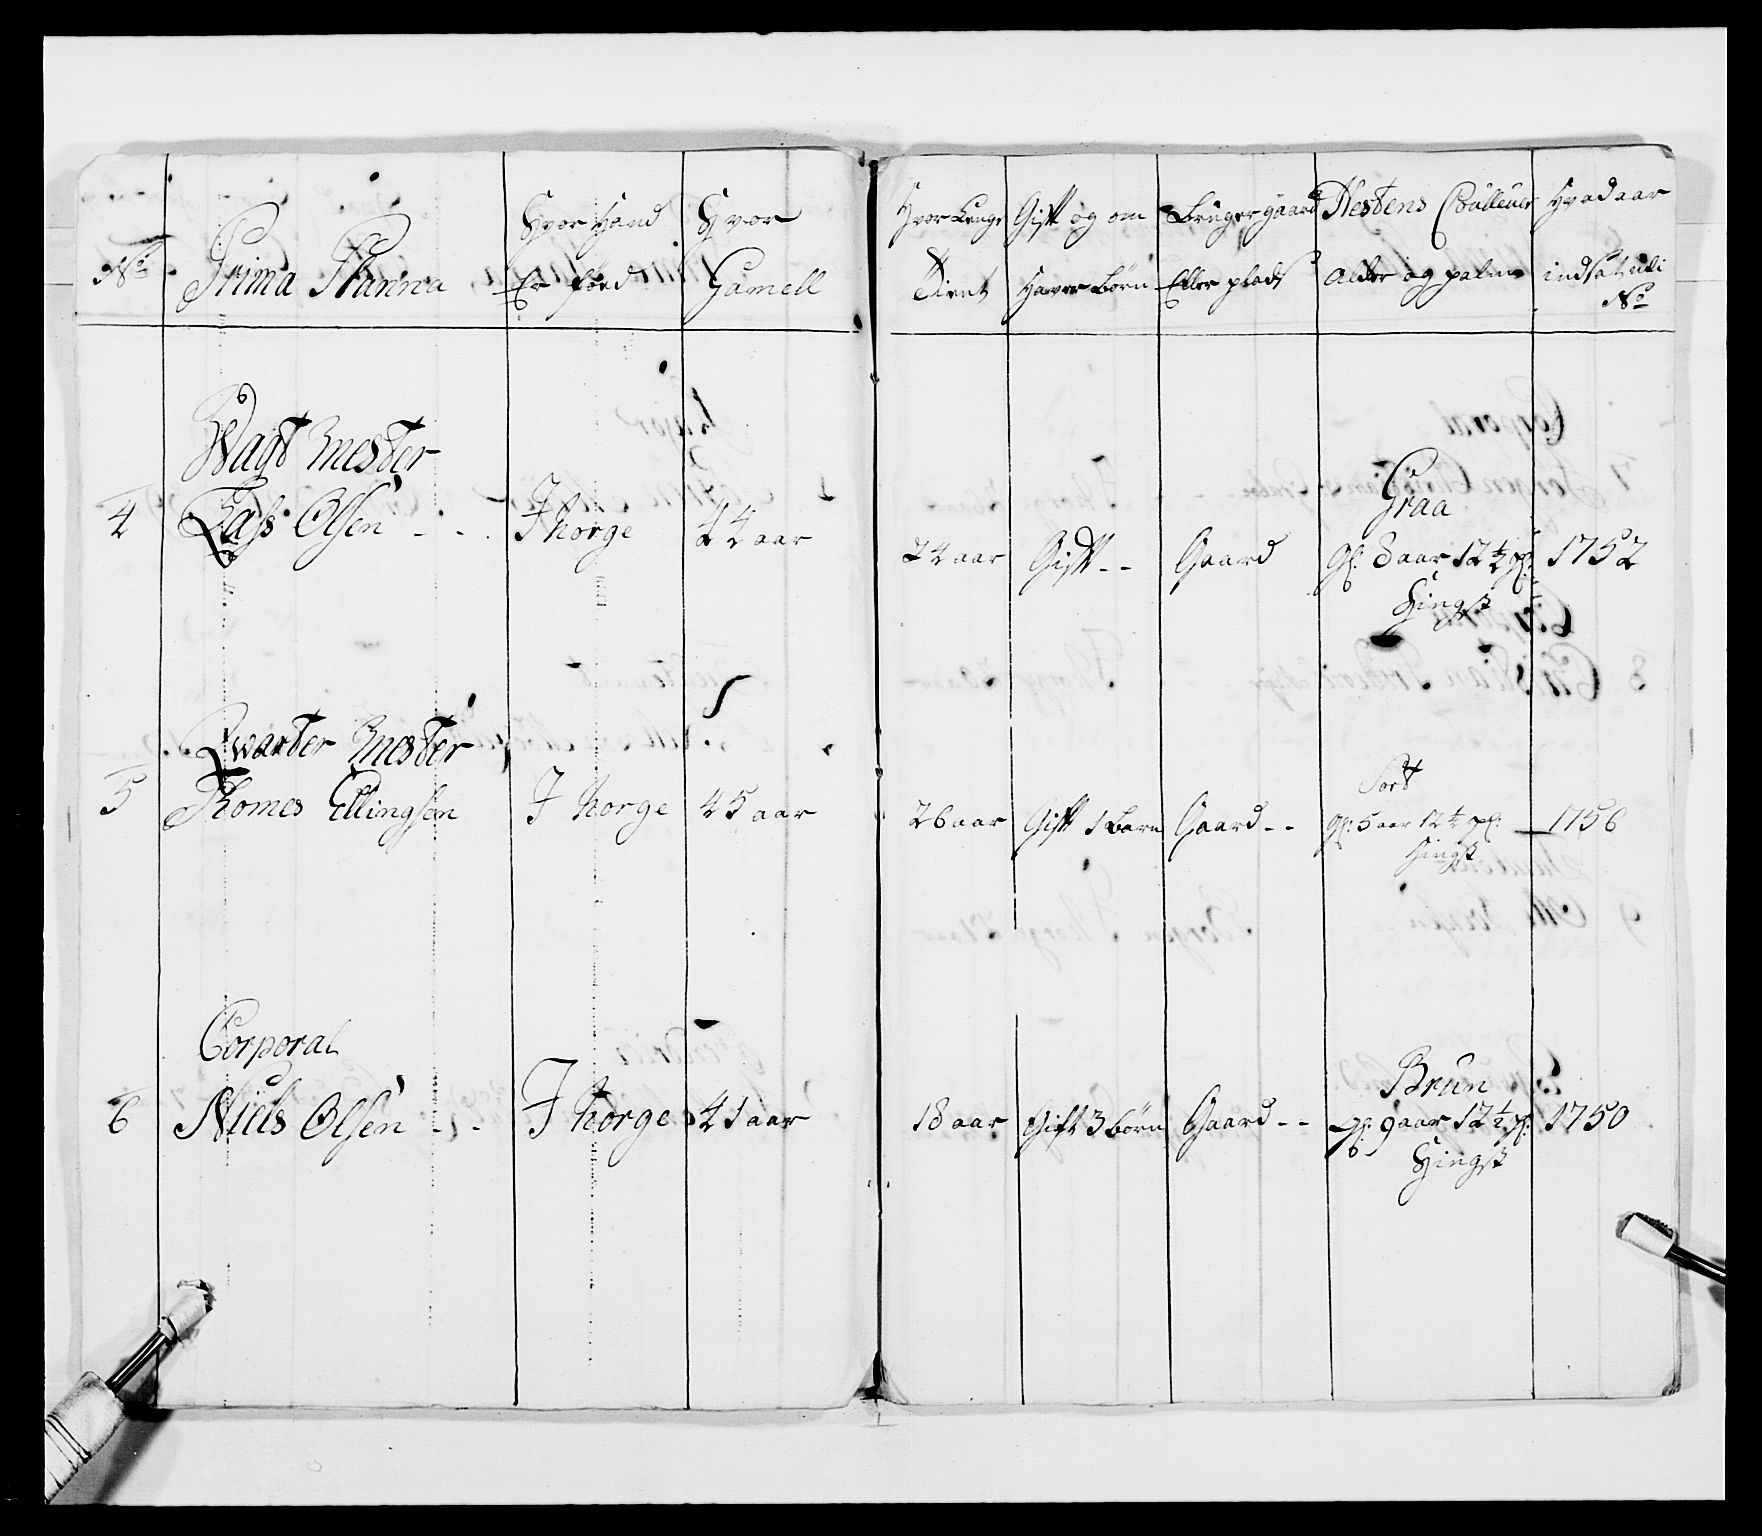 No Prima Planna Hvor Hand Er föed Hvor Gamell Hvor Lenge Tient Gift og om Haver Börn Bruger gaard Eller plads Hestens Couleur Alder og palme Hvad aar indsat udi No
Wagt Mester
4 Lass Olsen - - J Norge 44 aar 24 aar Gift - - Gaard Graa gl: 8 aar 12 ½ pl: Hingst 1752
Qwarter Mester
5 Thomes Ellingsen J Norge 45 aar 26 aar Gift 1 Barn Gaard - - Sort gl: 5 aar 12 ½ pl: Hingst 1756
Corporal
6 Niels Olsen - - J Norge 41 aar 18 aar Gift 3 börn Gaard - - Brun gl: 9 aar 12 ½ pl: Hingst 1750